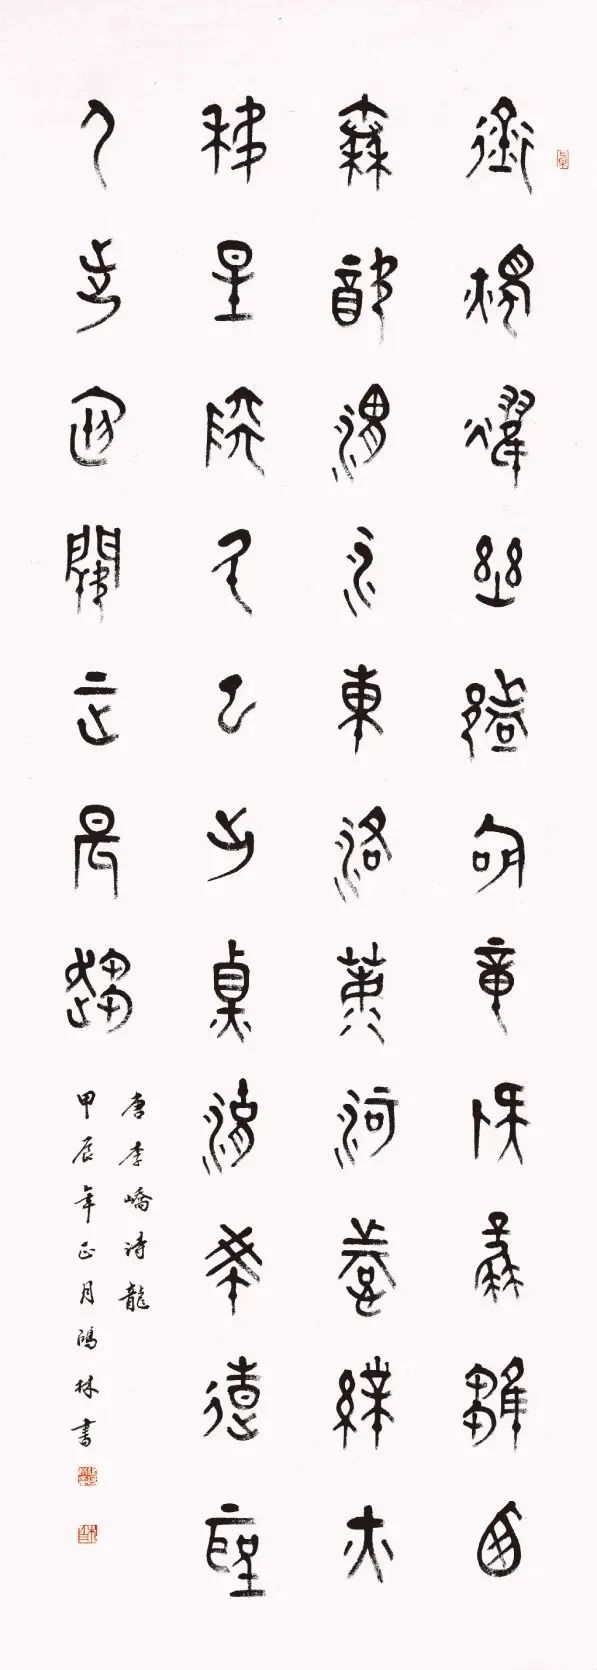 銜燭耀幽都含章擬鳳雛西
秦飲渭水東洛薦河圖帶火
移星陸升雲出鼎湖希逢聖
人步庭闕正晨趨
唐李嶠詩龍
甲辰年正月鴻林書